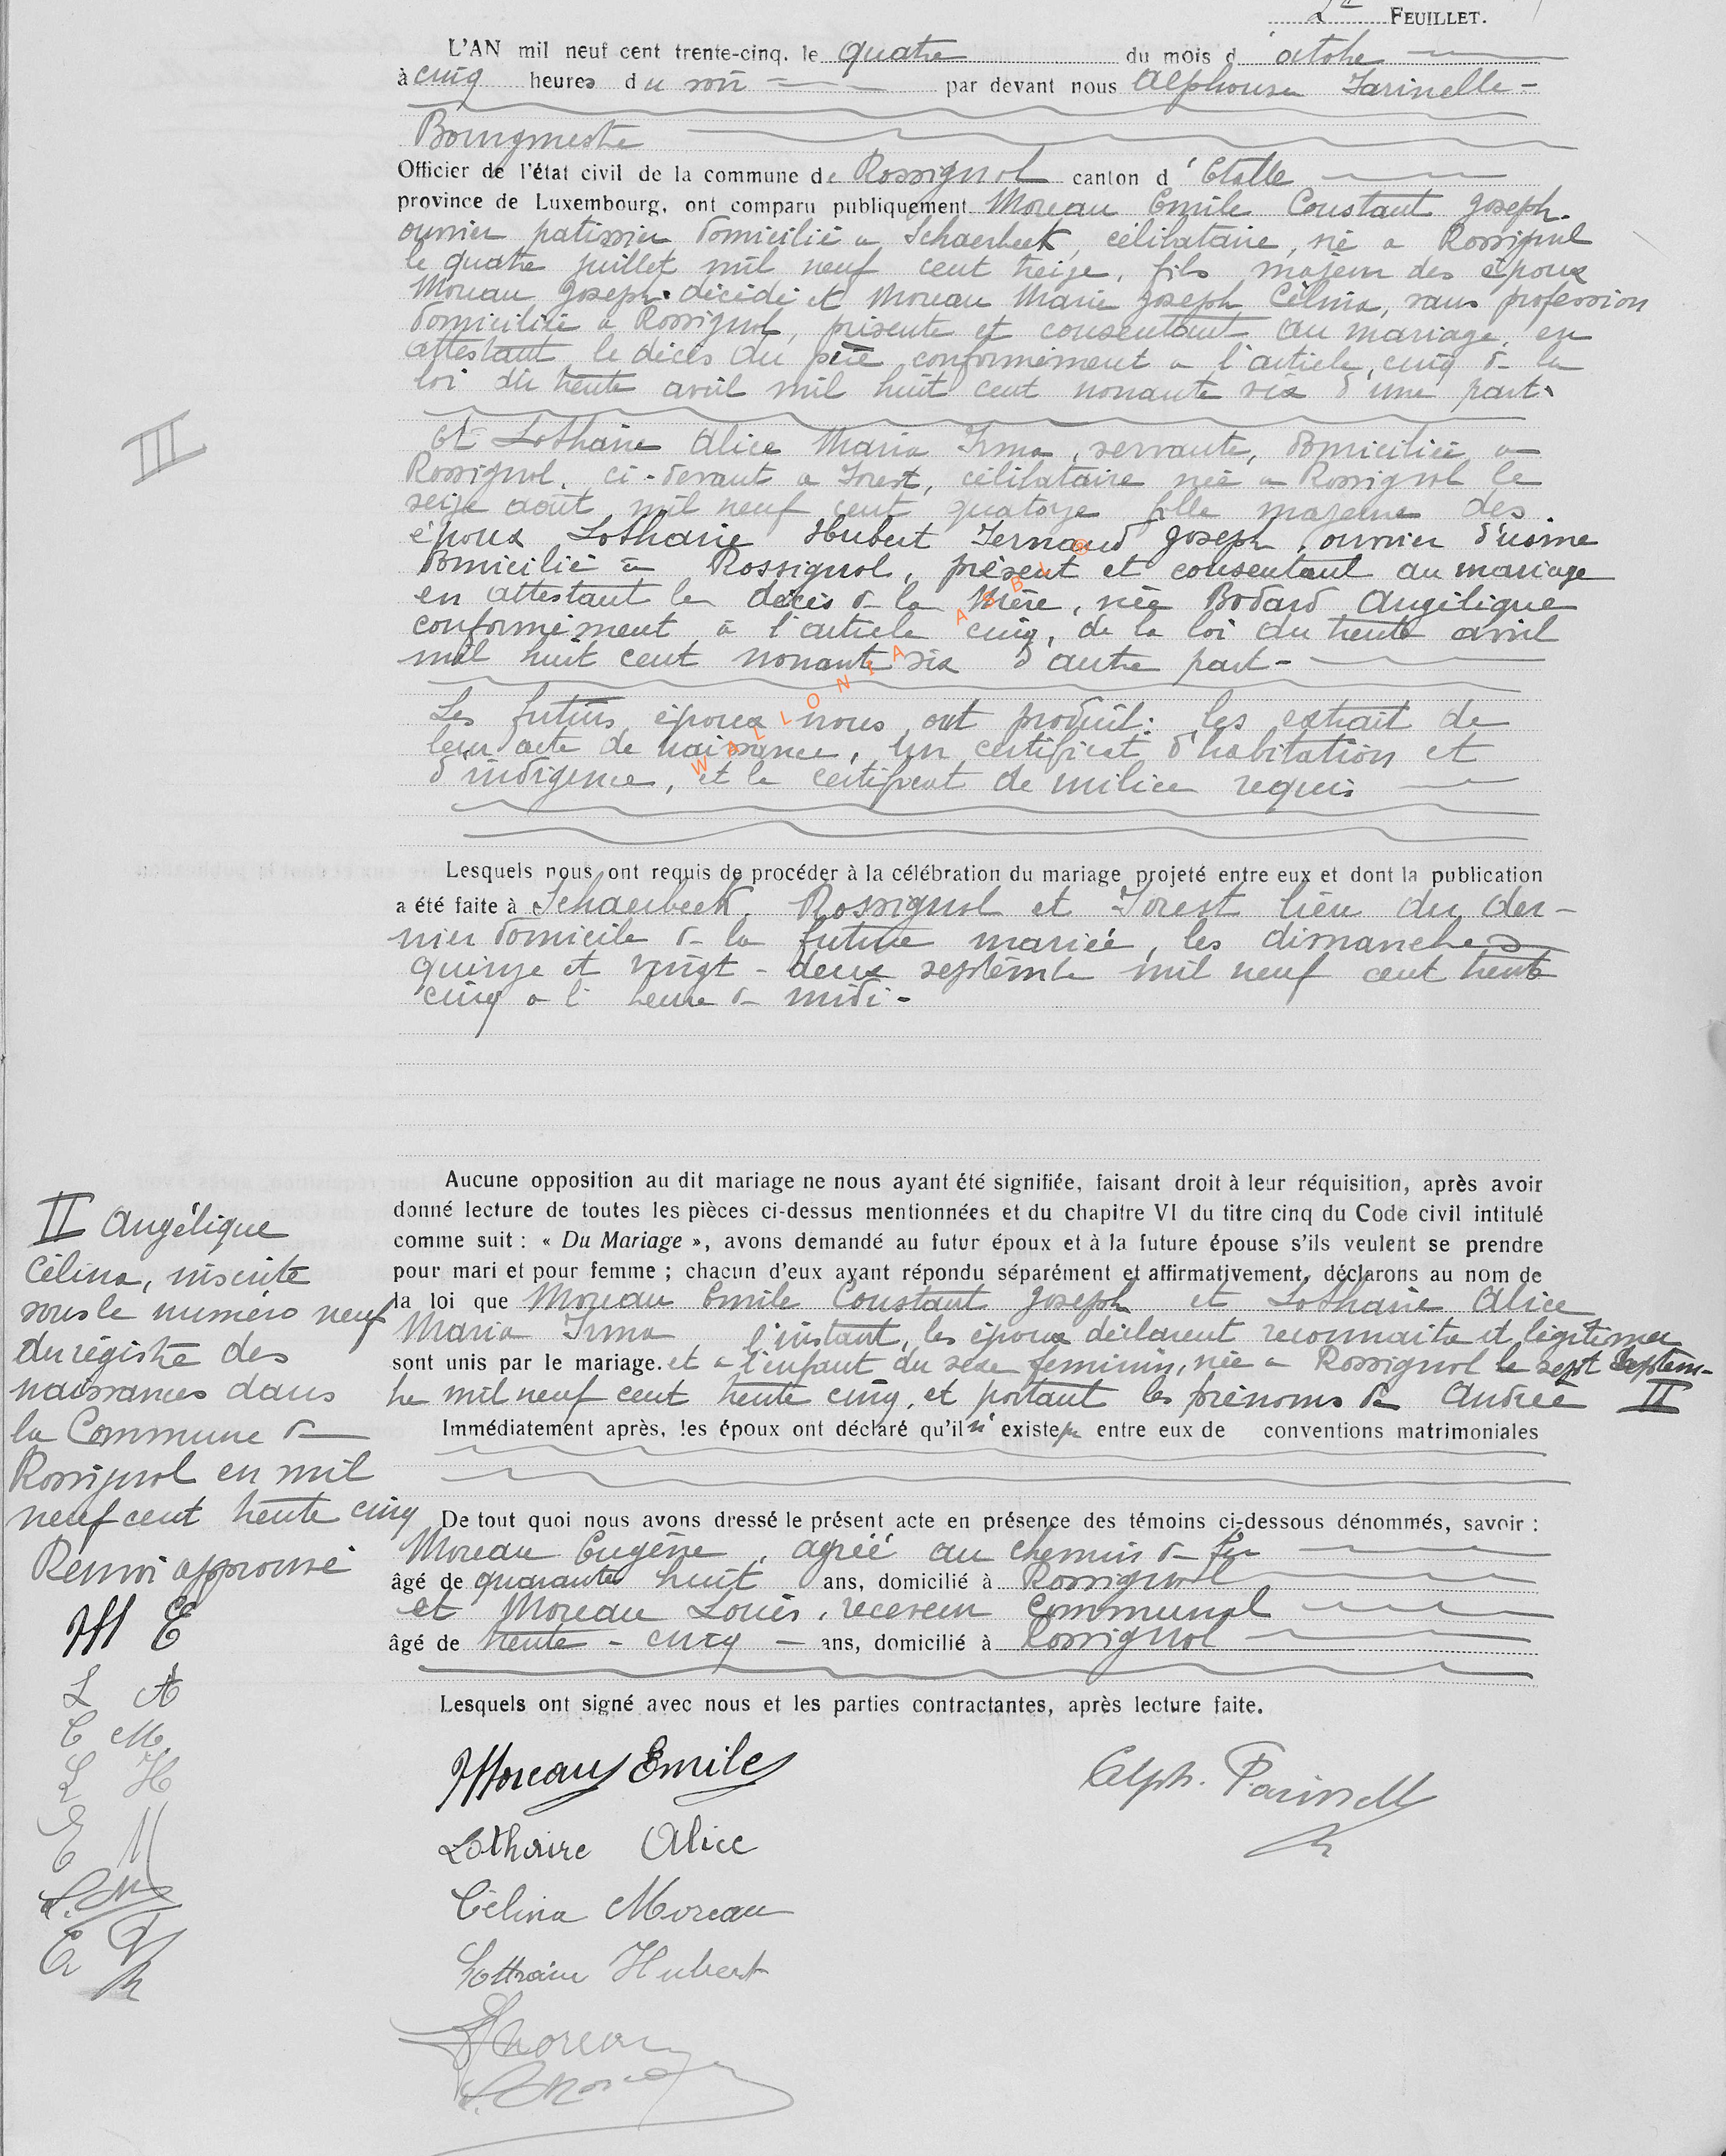 2e FEUILLET.
L'AN mil neuf cent trente-cinq, le quatre du mois d'octobre
à cinq heures du soir par devant nous Alphonse Farinelle -
Bourgmestre
Officier de l'état civil de la commune de Rossignol canton d'Etalle
province de Luxembourg, ont comparu publiquement Moreau Emile Constant Joseph.
ouvrier patissier domicilié a Schaerbeek, célibataire, né a Rossignol
le quatre juillet mil neuf cent treize, fils majeur des époux
Moreau Joseph décédé et Moreau Marie Joseph Célina, sans profession
domiciliée a Rossignol, présente et consentant au mariage, en
attestant le décès du père conformément a l'article cinq de la
loi du trente avril mil huit cent nonante six d'une part.
III
et Lothaire Alice Maria Irma, servante, domiciliée a
Rossignol, ci-devant a Forest, célibataire née a Rossignol le
seize août mil neuf cent quatorze fille majeure des
époux Lothaire Hubert Fernand Joseph, ouvrier d'usine
domicilié à Rossignol, présent et consentant au mariage
en attestant le décès de la mère, née Bodard Angélique
conformément à l'article cinq, de la loi du trente avril
mil huit cent nonante six d'autre part -
WALLONIA ASBL ©
Les futurs époux nous ont produit: les extrait de
leur acte de naissance, un certificat d'habitation et
d'indigence, et le certificat de milice requis
Lesquels nous ont requis de procéder à la célébration du mariage projeté entre eux et dont la publication
a été faite à Schaerbeek, Rossignol et Forest lieu du der-
nier domicile de la future mariée, les dimanches
quinze et vingt-deux septembre mil neuf cent trente
cinq a l'heure de midi -
Aucune opposition au dit mariage ne nous ayant été signifiée, faisant droit à leur réquisition, après avoir
donné lecture de toutes les pièces ci-dessus mentionnées et du chapitre VI du titre cinq du Code civil intitulé
comme suit : « Du Mariage », avons demandé au futur époux et à la future épouse s'ils veulent se prendre
pour mari et pour femme ; chacun d'eux ayant répondu séparément et affirmativement, déclarons au nom de
la loi que Moreau Emile Constant Joseph et Lothaire Alice
Maria Irma l'instant, les époux déclarent reconnaitre et légitimer
sont unis par le mariage. et a l'enfant du sexe feminin, née a Rossignol le sept septem-
bre mil neuf cent trente cinq, et portant les prénoms de Andrée II
Immédiatement après, les époux ont déclaré qu'il n'existe pas entre eux de conventions matrimoniales
II Angélique
Célina, inscrite
sous le numéro neuf
du régistre des
naissances dans
la Commune de
Rossignol en mil
neuf cent trente cinq
Renvoi approuvé
M E
L A
C M.
L H
E M
L. M
De tout quoi nous avons dressé le présent acte en présence des témoins ci-dessous dénommés, savoir :
Moreau Eugène, agréé au chemin de fer
âgé de quarante huit ans, domicilié à Rossignol
et Moreau Louis, receveur communal
âgé de trente - cinq - ans, domicilié à Rossignol
Lesquels ont signé avec nous et les parties contractantes, après lecture faite.
Moreau Emile
Alph. Farinelle
Lothaire Alice
Célina Moreau
Lothaire Hubert
Moreau
L. Moreau